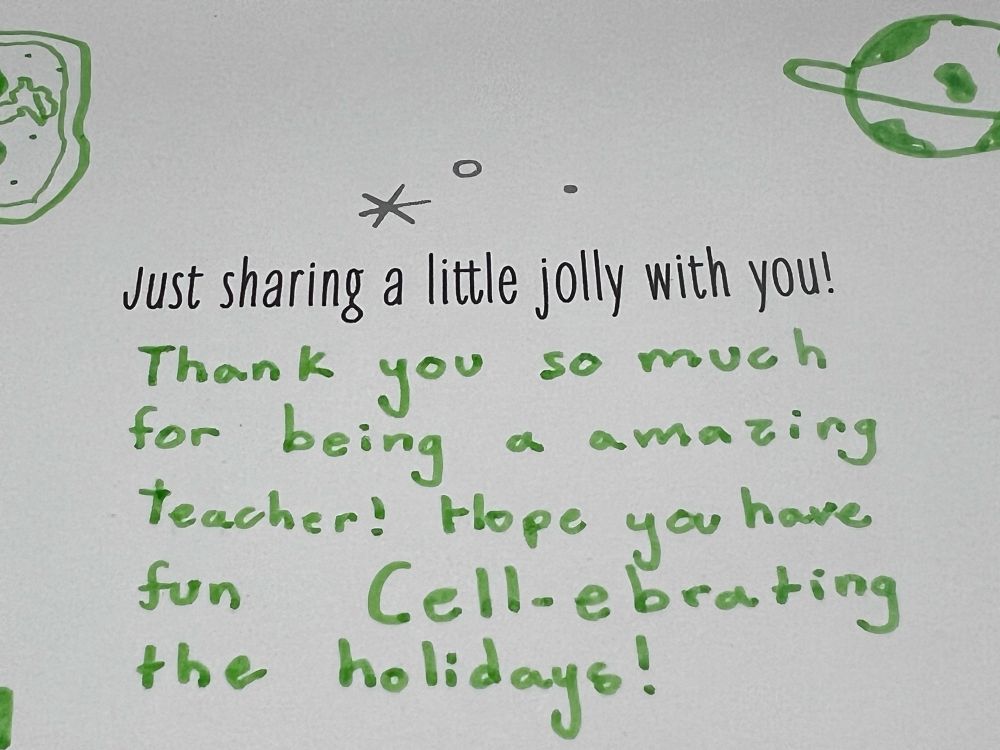 Just sharing a little jolly with you!
Thank you so much
for being a amazing
teacher! Hope you have
fun Cell-ebrating
the holidays!